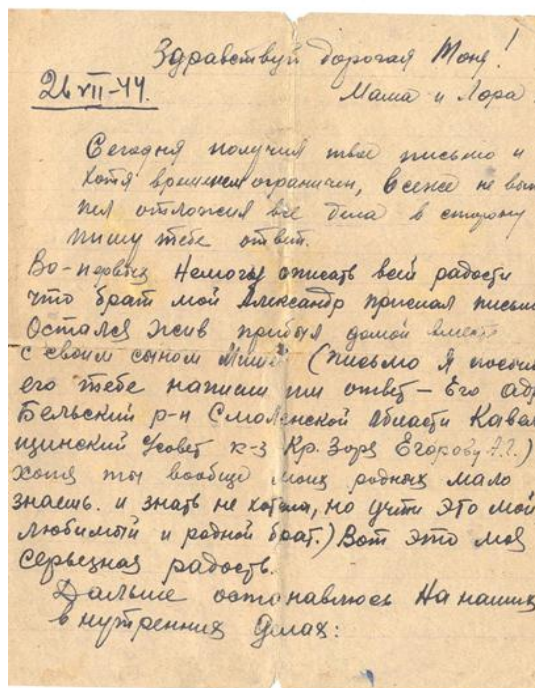 Здравствуй дорогая Тоня!
26 VII-44.
Мама и Лора
Сегодня получил твое письмо и
хотя временем ограничен, всеже не вы
пел отложил все дела в сторону
пишу тебе ответ.
Во-первых Немогу описать всей радости
что брат мой Александр прислал письмо
Остался жив прибыл домой вместе
с своим сыном Мишей (письмо я
его тебе напиши им ответ – Его адр
Бельский р-н Смоленской области
щинский с/совет к-з Кр. Зоря Егорову А.Г.)
хотя ты вообще моих родных мало
знаешь. и знать не хотела, но учти это мой
любимый и родной брат.) Вот это моя
серьезная радость.
Дальше останавлюсь На наших
внутренних делах: